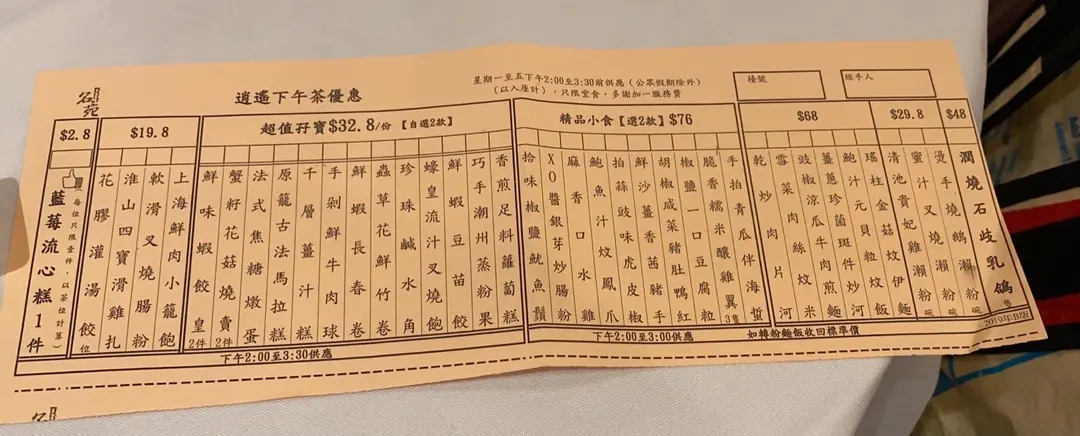 名苑
逍遙下午茶優惠
星期一至五下午2:00至3:30前供應（公眾假期除外）
（以入座計），只限堂食，多謝加一服務費
檯號
經手人
$2.8
藍莓流心糕1件
（每位只限壹件，以茶位計算）
$19.8
花膠灌湯餃 位
淮山四寶滑雞扎
軟滑叉燒腸粉
上海鮮肉小籠飽
超值孖寶$32.8/份 【自選2款】
鮮味蝦餃皇 2件
蟹籽花菇燒賣 2件
法式焦糖燉蛋
原籠古法馬拉糕
千層薑汁糕
手剁鮮牛肉球
鮮蝦長春卷
蟲草花鮮竹卷
珍珠鹹水角
蠔皇流汁叉燒飽
鮮蝦豆苗餃
巧手潮州蒸粉果
香煎足料蘿蔔糕
精品小食【選2款】$76
拾味椒鹽魷魚鬚
XO醬銀芽炒腸粉
麻香口水雞
鮑魚汁炆鳳爪
拍蒜豉味虎皮椒
鮮沙薑香茜豬手
胡椒咸菜豬肚鴨紅
椒鹽一口豆腐粒
脆香糯米釀雞翼 3隻
手拍青瓜伴海蜇
$68
乾炒肉片河
雪菜肉絲炆米
$29.8
蜜汁叉燒瀨粉 碗
燙手燒鵝瀨粉 碗
$48
潤燒石歧乳鴿 隻
下午2:00至3:30供應
下午2:00至3:00供應
如轉粉麵飯收回標準價
2019年B版